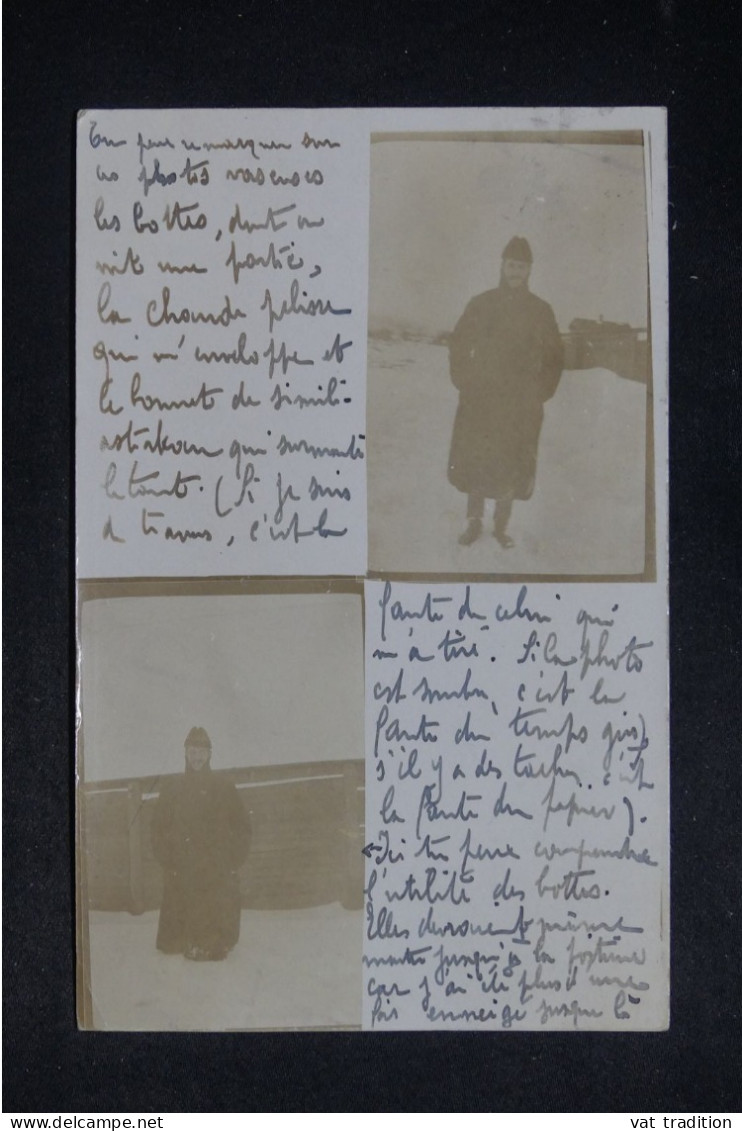 Tu peux remarquer sur
ces photos vaseuses
les bottes, dont on
voit une partie,
la chaude pelisse
qui m'enveloppe et
le bonnet de simili-
astrakan qui surmonte
le tout. (Si je suis
de travers, c'est la
faute de celui qui
m'a tiré. Si la photo
est sombre, c'est la
faute du temps gris,
s'il y a des taches c'est
la faute du papier).
← Ici tu peux comprendre
l'utilité des bottes.
Elles devraient même
monter jusqu'à la poitrine
car j'ai été plus d'une
fois enneigé jusque là
vat tradition